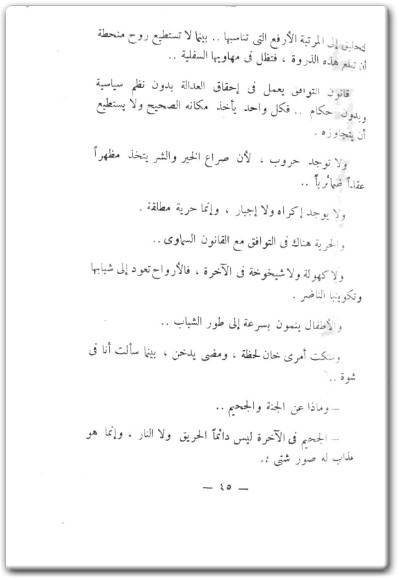 لتحلق إلى المرتبة الأرفع التى تناسبها .. بينما لا تستطيع روح منحطة
أن تبلغ هذه الذروة ، فتظل فى مهاويها السفلية ..
قانون التوافق يعمل فى إحقاق العدالة بدون نظم سياسية
وبدون حكام .. فكل واحد يأخذ مكانه الصحيح ولا يستطيع
أن يتجاوزه .
ولا توجد حروب ، لأن صراع الخير والشر يتخذ مظهراً
عقلياً ضمائرياً ..
ولا يوجد إكراه ولا إجبار ، وإنما حرية مطلقة .
والحرية هناك فى التوافق مع القانون السماوى ..
ولا كهولة ولا شيخوخة فى الآخرة ، فالأرواح تعود إلى شبابها
وتكوينها الناضر .
والأطفال ينمون بسرعة إلى طور الشباب ..
وسكت أمرى خان لحظة ، ومضى يدخن ، بينما سألت أنا فى
شوة ..
– وماذا عن الجنة والجحيم ..
– الجحيم فى الآخرة ليس دائماً الحريق ولا النار ، وإنما هو
عذاب له صور شتى ..
– ٤٥ –